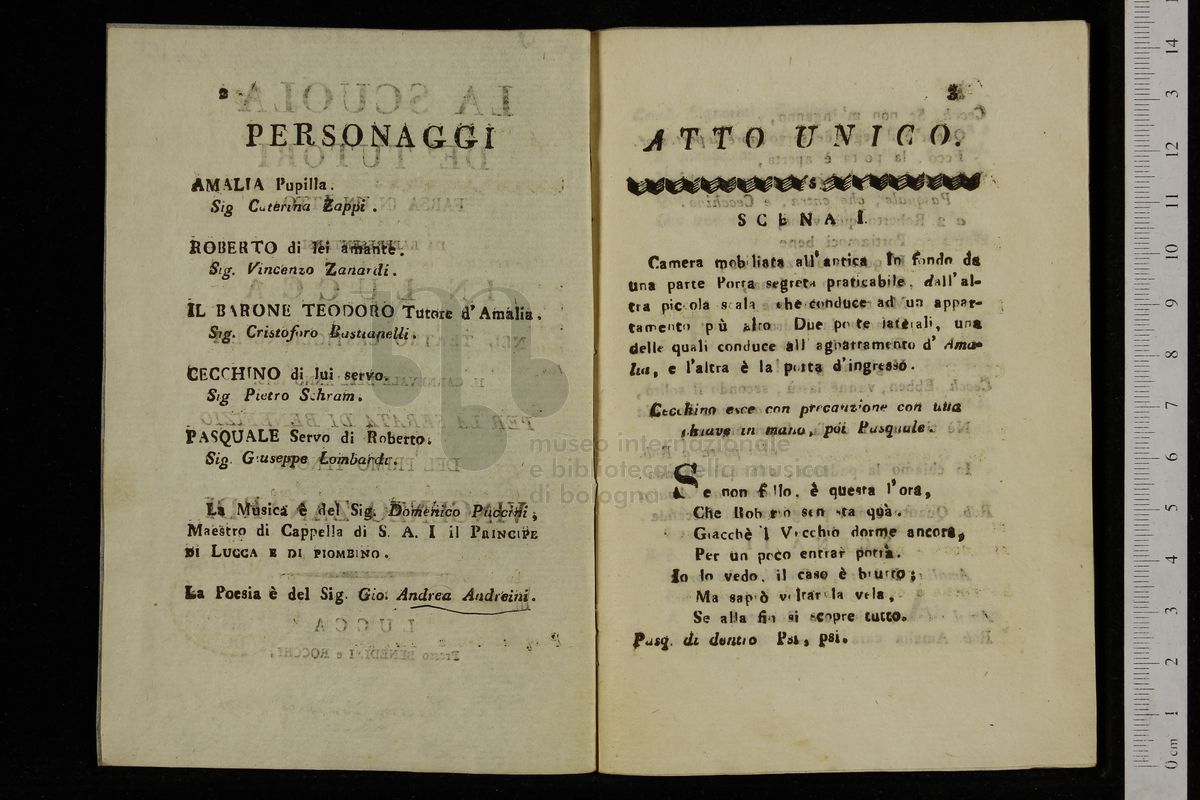 2
PERSONAGGI
AMALIA Pupilla.
Sig Caterina Zappi.
ROBERTO di lei amante.
Sig. Vincenzo Zanardi.
IL BARONE TEODORO Tutore d'Amalia.
Sig. Cristoforo Bastianelli.
CECCHINO di lui servo.
Sig Pietro Schram.
PASQUALE Servo di Roberto.
Sig. Giuseppe Lombardi.
La Musica è del Sig. Domenico Puccini,
Maestro di Cappella di S. A. I il PRINCIPE
DI LUCCA E DI PIOMBINO.
La Poesia è del Sig. Gio. Andrea Andreini.
3
ATTO UNICO.
SCENA I.
Camera mobiliata all'antica In fondo da
una parte Porta segreta praticabile, dall'al-
tra piccola scala che conduce ad un appar-
tamento più alto Due porte laterali, una
delle quali conduce all'appartamento d' Ama-
lia, e l'altra è la porta d'ingresso.
Cecchino esce con precauzione con una
chiave in mano, poi Pasquale.
Se non fallo, è questa l'ora,
Che Roberto sen sta quà.
Giacchè il Vecchio dorme ancora,
Per un poco entrar potrà.
Io lo vedo, il caso è brutto;
Ma saprò voltar la vela,
Se alla fin si scopre tutto.
Pasq. di dentro Psi, psi.
museo internazionale
e biblioteca della musica
di bologna
14
13
12
11
10
9
8
7
6
5
4
3
2
1
0 cm